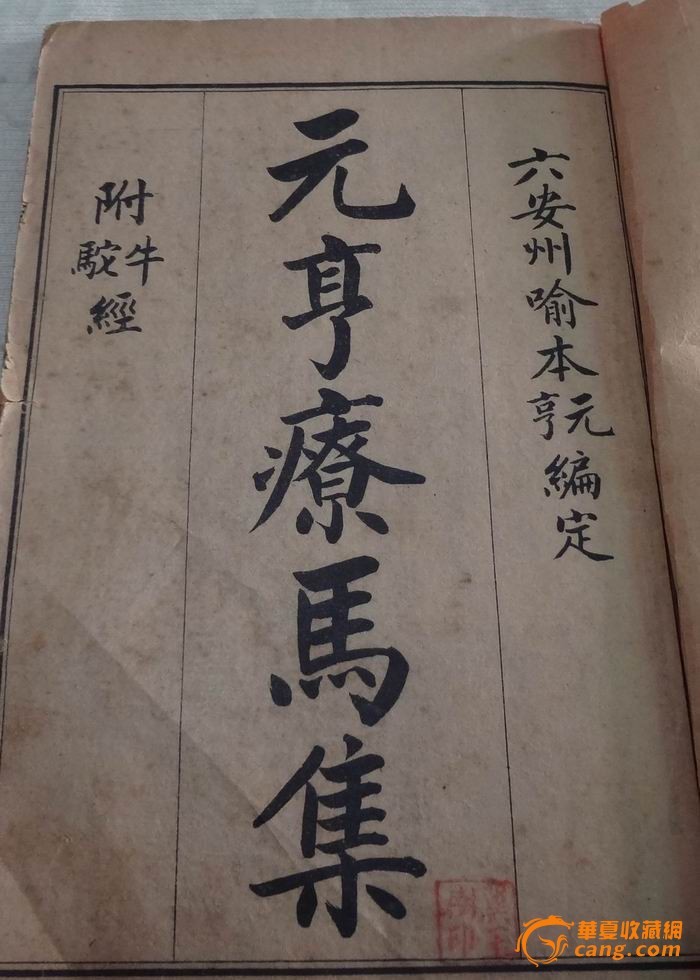 六安州喻本元亨編定
元亨療馬集
附牛駝經
華夏收藏網
cang.com